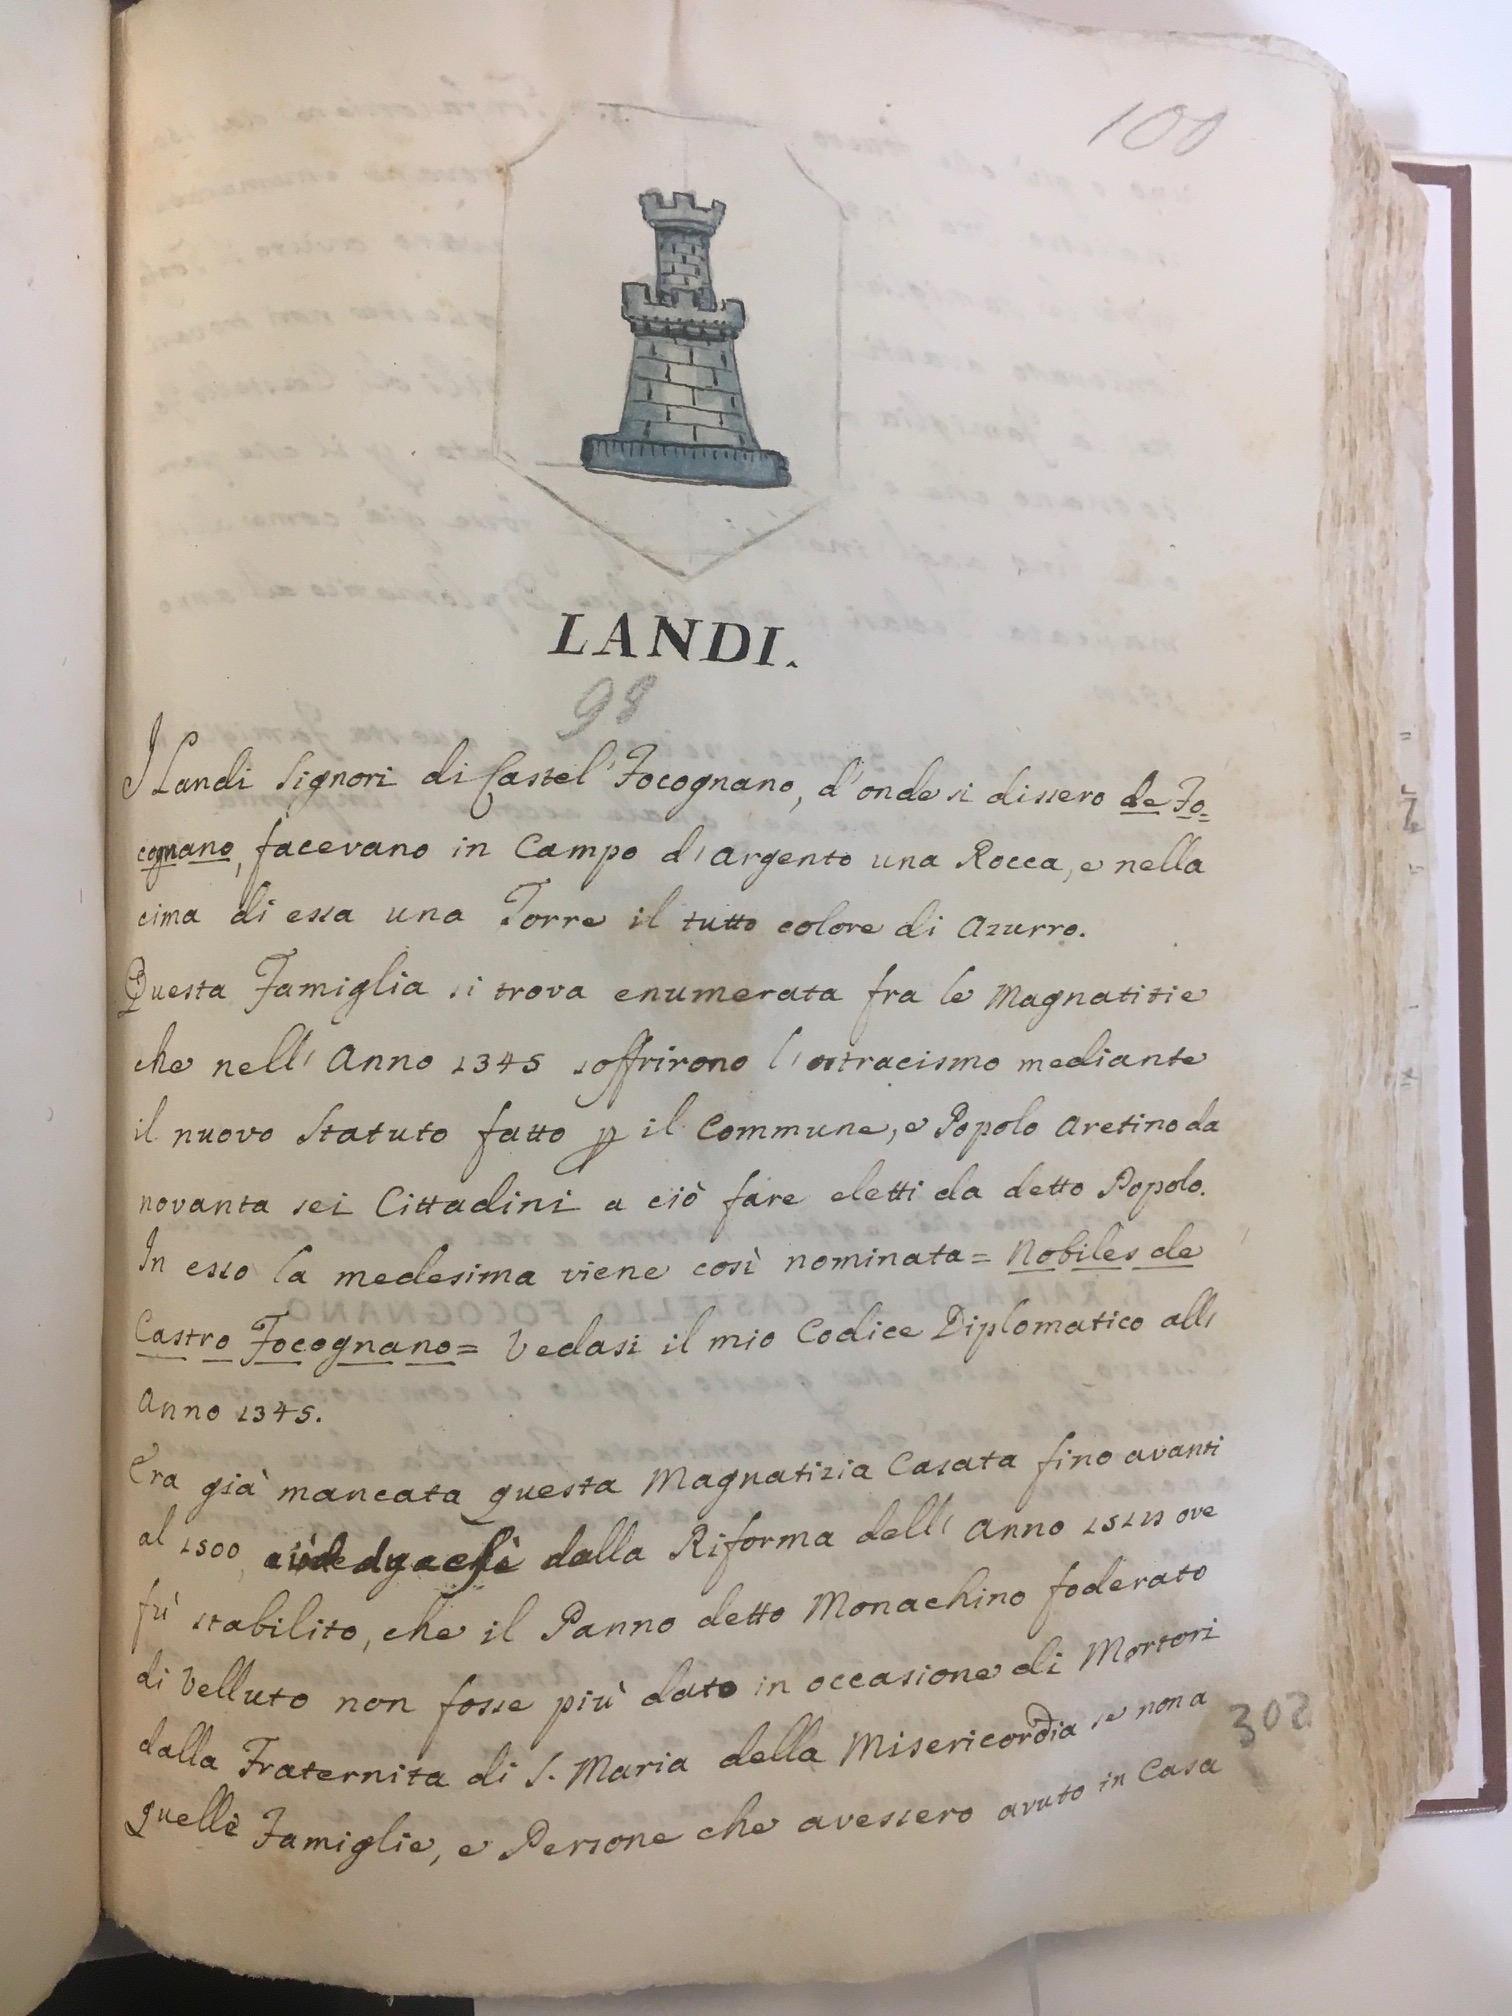 100
LANDI.
98
I Landi Signori di Castel' Focognano, d'onde si dissero de Fo=
cognano, facevano in Campo d'argento una Rocca, e nella
cima di essa una Torre il tutto colore di azurro.
Questa Famiglia si trova enumerata fra le Magnatitie
che nell' Anno 1345 soffrirono l'ostracismo mediante
il nuovo Statuto fatto p il Commune, e Popolo aretino da
novanta sei Cittadini a ciò fare eletti da detto Popolo.
In esso la medesima viene così nominata = Nobiles de
Castro Focognano = Vedasi il mio Codice Diplomatico all'
Anno 1345.
Era già mancata questa Magnatizia Casata fino avanti
al 1500, dalla Riforma dell' Anno ove
fù stabilito, che il Panno detto Monachino foderato
di Velluto non fosse più dato in occasione di Mortori
dalla Fraternita di S. Maria della Misericordia se non a
quelle Famiglie, e Persone che avessero avuto in Casa
302